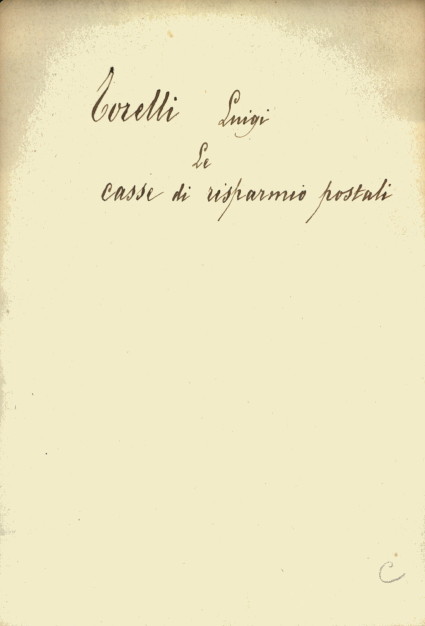 Torelli Luigi
Le
casse di risparmio postali
C